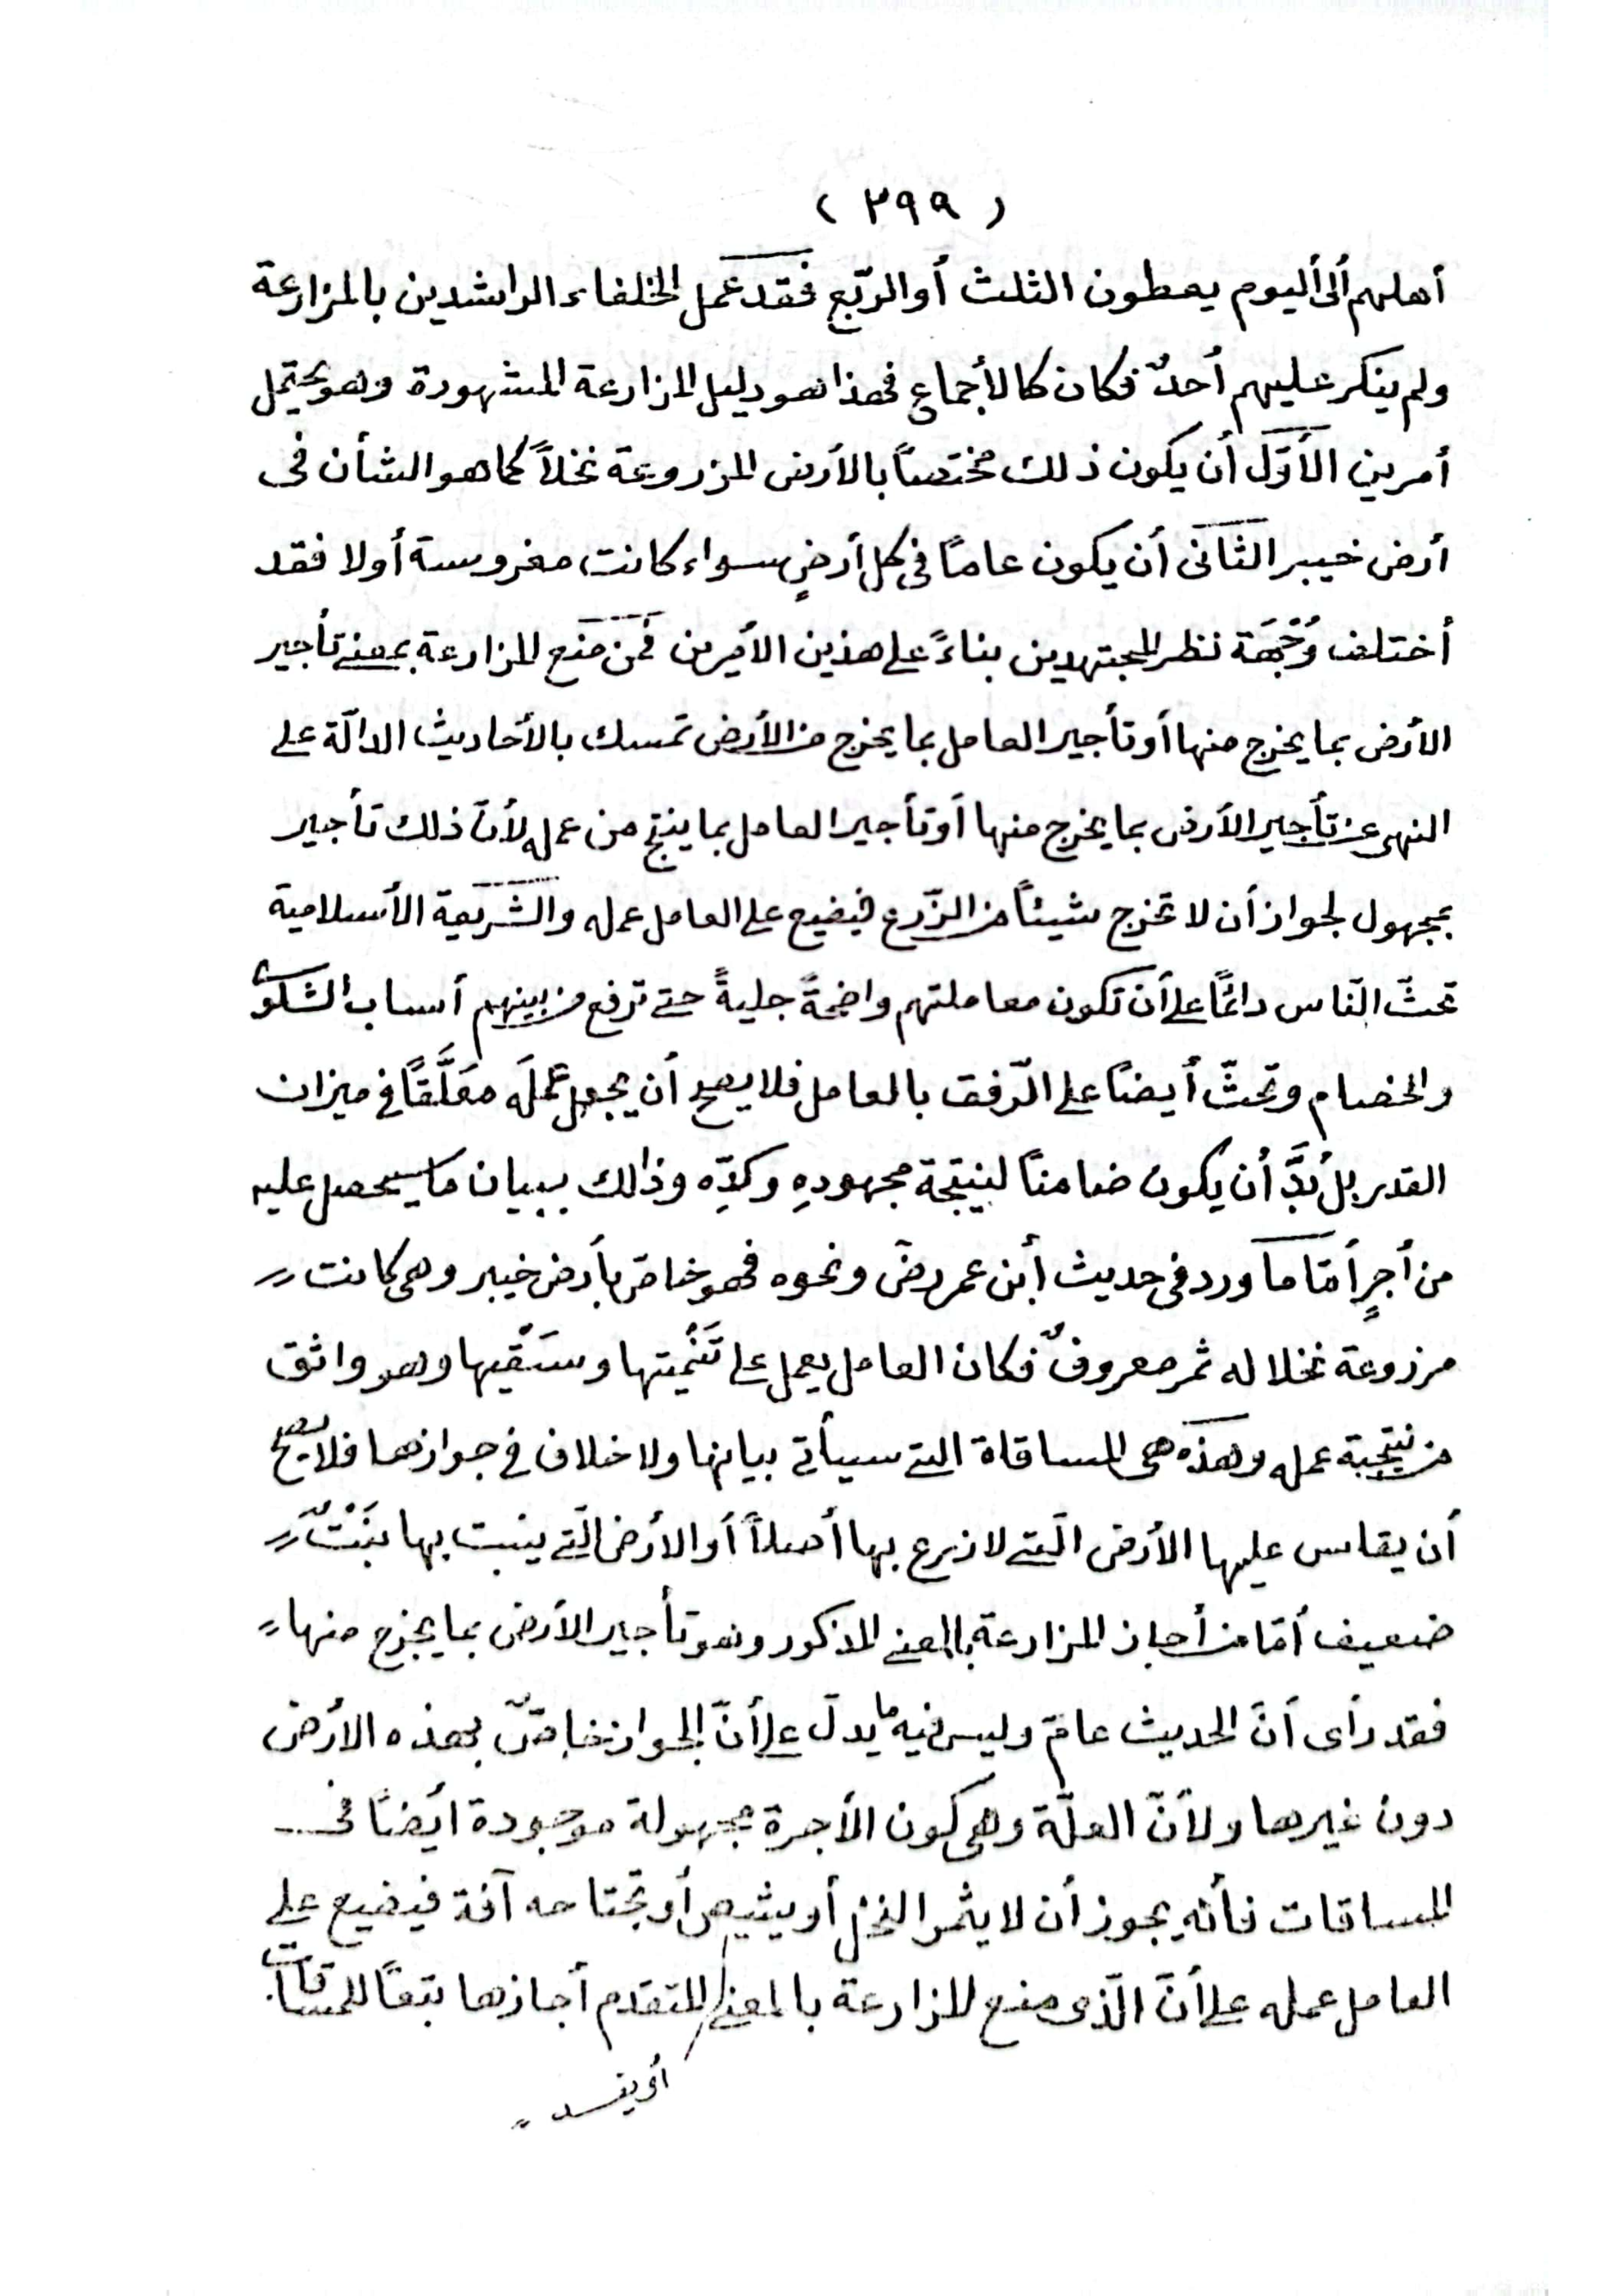 ( ٢٩٩ )
أهلهم ألى أليوم يعطون الثلث أو الربّع فقد عمل الخلفاء الراشدين بالمزارعة
ولم ينكر عليهم أحدٌ فكان كالأجماع فهذا هو دليل المزارعة المشهودة وهو يحتمل
أمرين الأوّل أن يكون ذلك مختصاً بالأرض المزروعة نخلاً كما هو الشأن فى
أرض خيبر الثانى أن يكون عاماً فى كل أرضٍ سواء كانت مغروسة أولا فقد
أختلف وُجْهَة نظر المجتهدين بناءً على هذين الأمرين فمن منع المزارعة بمعنى تأجير
الأرض بما يخرج منها أو تأجير العامل بما يخرج من الأرض تمسك بالأحاديث الدالّة على
النهى عن تأجير الأرض بما يخرج منها أو تأجير العامل بما ينتج من عمله لأنّ ذلك تأجير
بمجهول لجواز أن لا تخرج شيئاً من الزّرع فيضيع على العامل عمله والشريعة الأسلامية
تحثّ النّاس دائمًا على أن تكون معاملتهم واضحةً جليةً حتى ترفع من بينهم أسباب الشكوى
والخصام وتحثّ أيضًا على الرّفق بالعامل فلا يصح أن يجعل عمله معَلَّقًا فى ميزان
القدر بل لُابدَّ أن يكون ضامنًا لنيتجة مجهودهِ وكدّهِ وذالك ببيان ما سيحصل عليه
من أجرٍ أمّا ما ورد فى حديث أبن عمر رضَ ونحوه فهو خاصّ بأرض خيبر وهى كانت
مرزوعة نخلا له ثمر معروفٌ فكان العامل يعمل على تَنْميتها وسَقْيها وهو واثق
من نتيجبة عمله وهذه هى المساقاة التى سيأتى بيانها ولا خلاف فى جوازها فلا يصح
أن يقاس عليها الأرض الّتى لا زرع بها أصلاً أو الأرض الّتى ينبت بها نَبْتٌ
ضعيف أمّا من أجاز المزارعة بالمعنى المذكور وهو تأجير الأرض بما يخرج منها
فقد رأى أنّ الحديث عامّ وليس فيه ما يدلّ على أنّ الجواز خاصٌّ بهذه الأرض
دون غيرها ولأنّ العلّة وهى كون الأجرة مجهولة موجودة ايضًا فى
المساقات فأنّه يجوز أن لا يثمر النخل أو يثيص أو تجتاحه آفة فيضيع على
العامل عمله على أنّ الّذى منع المزارعة بالمعنى المتقدم أجازها تبعًا للمساقات
أو يفسد